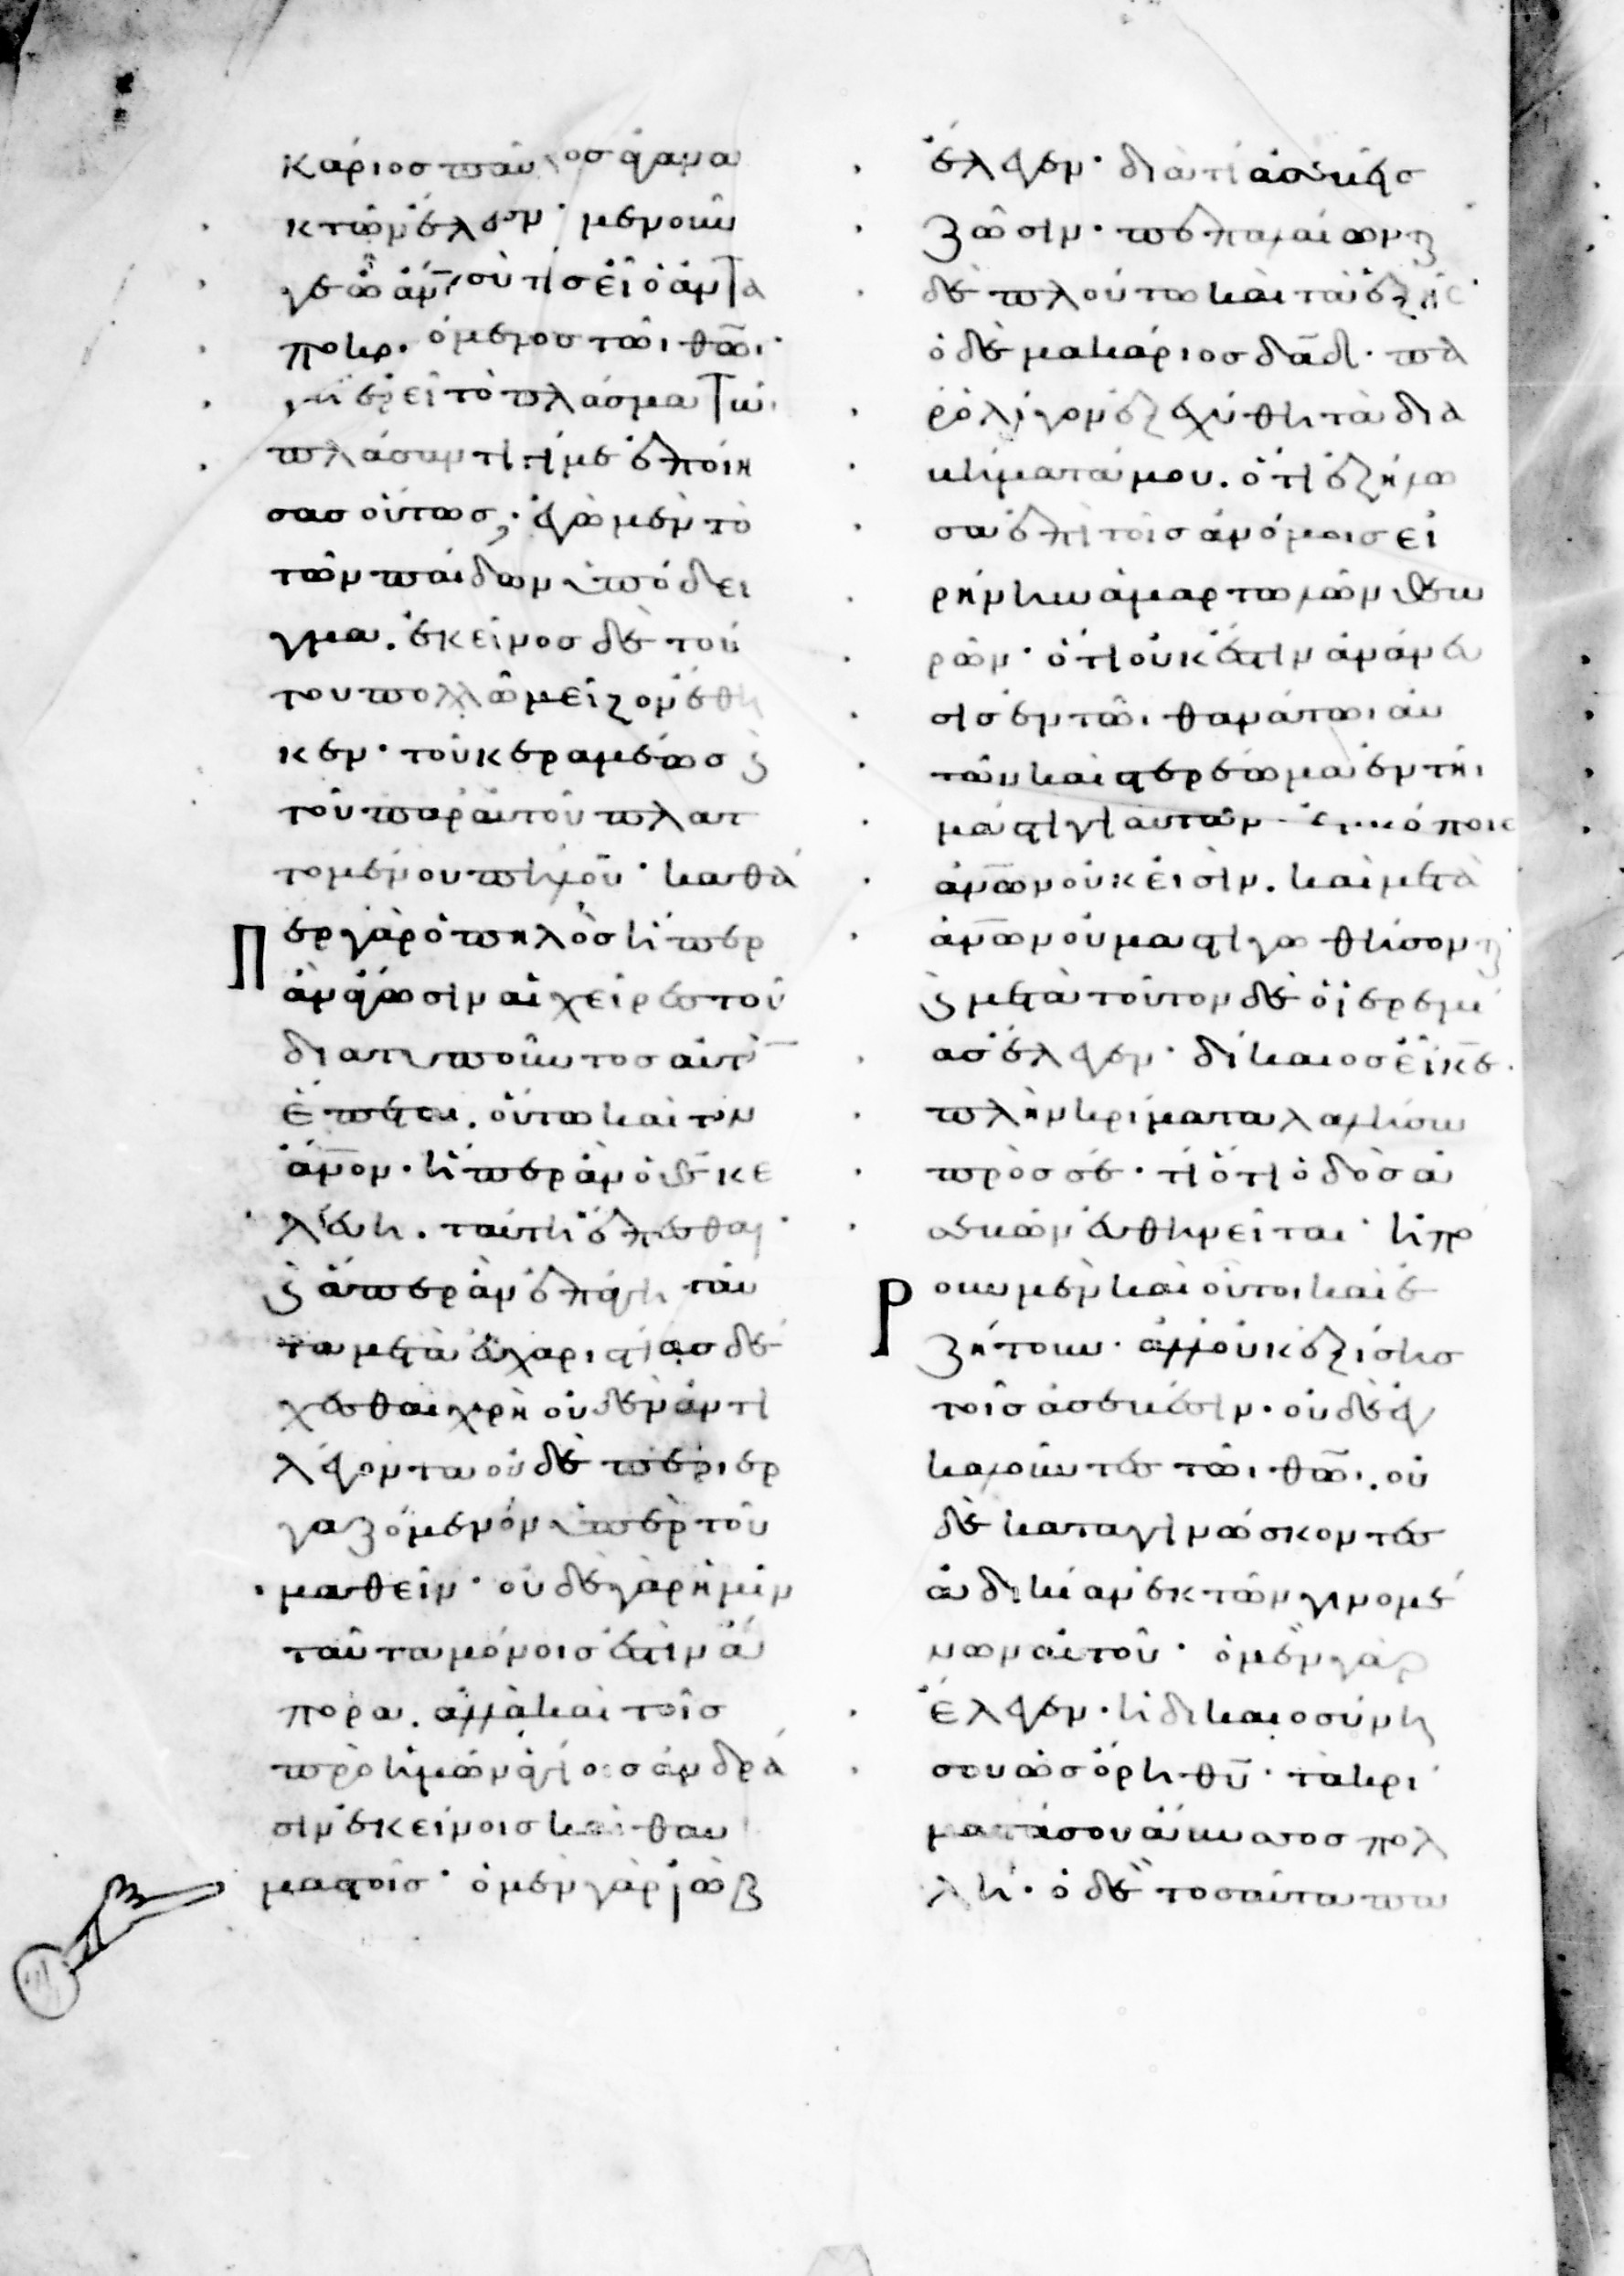 κάριος παῦλος ἀγανα
κτῶν ἔλεγεν· μενοῦν
γε ὦ ἄν̅ε σὺ τίς εἶ ὁ ἀντα
ποκρινόμενος τῶι θω̅ι·
μὴ ἐρεῖ τὸ πλάσμα τῶι
πλάσαντι τί με ἐποίη
σας οὕτως; ἐγὼ μὲν τὸ
τῶν παίδων ὑπόδει
γμα. ἐκεῖνος δὲ τού
του πολλῶ μεῖζον ἔθη
κεν· τοῦ κεραμέως ϗ
τοῦ παρ αὐτοῦ πλατ
τομένου πηλοῦ· καθά
περ γὰρ ὁ πηλὸς ἧπερ
ἂν ἄγωσιν αἱ χεῖρες τοῦ
διατυποῦντος αὐτὸν
ἕπεται. οὕτω καὶ τὸν
ἄν̅ον· ἧπερ ἂν ὁ θς̅ κε
λεύη. ταύτη ἕπεσθαι·
ϗ ἅπερ ἂν ἐπάγη ταῦ
τα μετὰ εὐχαριστίας δέ
χεσθαι χρὴ οὐδὲν ἀντι
λέγοντα οὐδὲ περιερ
γαζόμενον ὑπὲρ τοῦ
μαθεῖν· οὐδὲ γὰρ ἡμῖν
ταῦτα μόνοις ἐστὶν ἄ
πορα. ἀλλὰ καὶ τοῖς
πρὸ ἡμῶν ἁγίοις ἀνδρά
σιν ἐκείνοις καὶ θαυ
μαστοῖς· ὁ μὲν γὰρ ἰὼβ
ἔλεγεν· διατί ἀσεβεῖς
ζῶσιν· πεπαλαίωνται
δὲ πλούτω καὶ τὰ ἑξῆς·
ὁ δὲ μακάριος δα̅δ· πα
ρ ὀλίγον ἐξεχύθη τὰ δια
βήματά μου. ὅτι ἐζήλω
σα ἐπὶ τοῖς ἀνόμοις εἰ
ρήνην ἁμαρτωλῶν θεω
ρῶν· ὅτι οὐκ ἔστιν ἀνάνευ
σις ἐν τῶι θανάτωι αὐ
τῶν καὶ στερέωμα ἐν τῆι
μάστιγι αὐτῶν· ἐν κόποις
ἀν̅ων οὐκ εἰσὶν. καὶ μετὰ
ἀν̅ων οὐ μαστιγωθήσονται
ϗ μετὰ τοῦτον δὲ ὁ ἱερεμί
ας ἔλεγεν· δίκαιος εἶ κε̅·
πλὴν κρίματα λαλήσω
πρὸς σέ· τί ὅτι ὁδὸς ἀ
σεβῶν εὐθηνεῖται· ἠπό
ρουν μὲν καὶ οὗτοι καὶ ἐ
ζήτουν· ἀλλ οὐκ ἐξίσης
τοῖς ἀσεβέσιν· οὐδὲ ἐγ
καλοῦντες τῶι θω̅ι. οὐ
δὲ καταγινώσκοντες
ἀδικίαν ἐκ τῶν γινομέ
νων αὐτοῦ· ὁ μὲν γὰρ
ἔλεγεν· ἡ δικαιοσύνη
σου ὡς ὄρη θυ̅· τὰ κρί
ματά σου ἄβυσσος πολ
λή· ὁ δὲ τοσαῦτα πα